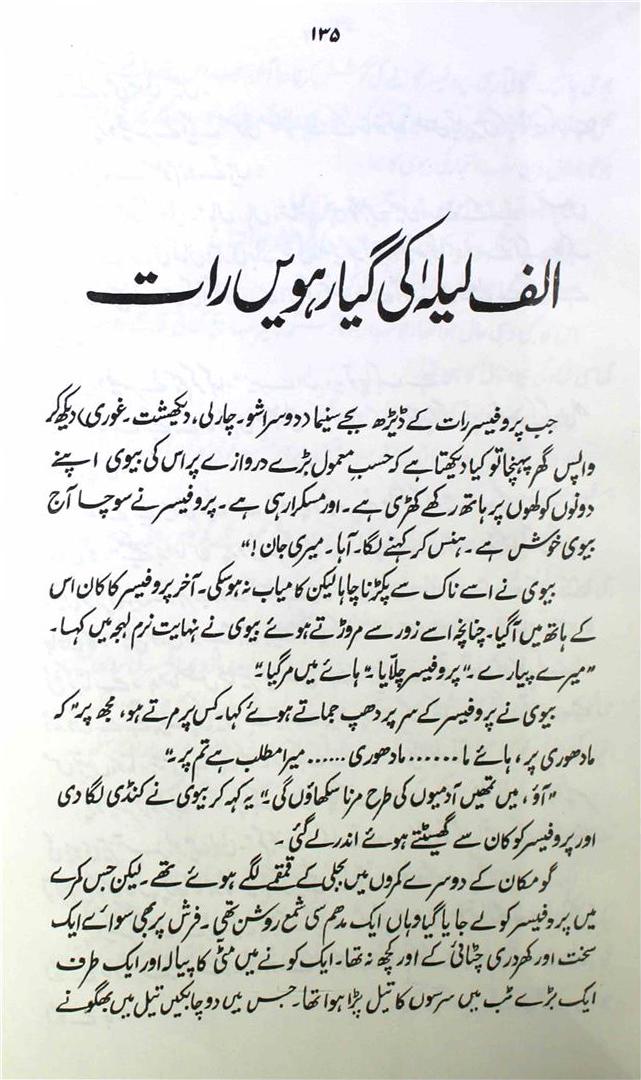 ۱۳۵
الف لیلہٰ کی گیارہویں رات
جب پروفیسر رات کے ڈیڑھ بجے سینما (دوسرا شو۔ چارلی، دیکھشت۔ غوری) دیکھ کر
واپس گھر پہنچا تو کیا دیکھتا ہے کہ حسبِ معمول بڑے دروازے پر اس کی بیوی اپنے
دونوں کولھوں پر ہاتھ رکھے کھڑی ہے۔ اور مسکرا رہی ہے۔ پروفیسر نے سوچا آج
بیوی خوش ہے۔ ہنس کر کہنے لگا۔ آہا۔ میری جان!"
بیوی نے اسے ناک سے پکڑنا چاہا لیکن کامیاب نہ ہوسکی۔ آخر پروفیسر کا کان اس
کے ہاتھ میں آگیا۔ چنانچہ اسے زور سے مروڑتے ہوئے بیوی نے نہایت نرم لہجہ میں کہا۔
"میرے پیارے۔" پروفیسر چلّایا۔ "ہائے میں مرگیا۔"
بیوی نے پروفیسر کے سر پر دھپ جماتے ہوئے کہا۔ کس پر مرتے ہو، مجھ پر" کہ
مادھوری پر، ہائے ما...... مادھوری ...... میرا مطلب ہے تم پر۔"
"آؤ، میں تمھیں آدمیوں کی طرح مرنا سکھاؤں گی۔" یہ کہہ کر بیوی نے کنڈی لگا دی
اور پروفیسر کو کان سے گھسیٹتے ہوئے اندر لے گئی۔
گو مکان کے دوسرے کمروں میں بجلی کے قمقمے لگے ہوئے تھے۔ لیکن جس کمرے
میں پروفیسر کو لے جایا گیا وہاں ایک مدھم سی شمع روشن تھی۔ فرش پر بھی سوائے ایک
سخت اور کھردری چٹائی کے اور کچھ نہ تھا۔ ایک کونے میں مٹی کا پیالہ اور ایک طرف
ایک بڑے ٹب میں سرسوں کا تیل پڑا ہوا تھا۔ جس میں دو چابکیں تیل میں بھگونے